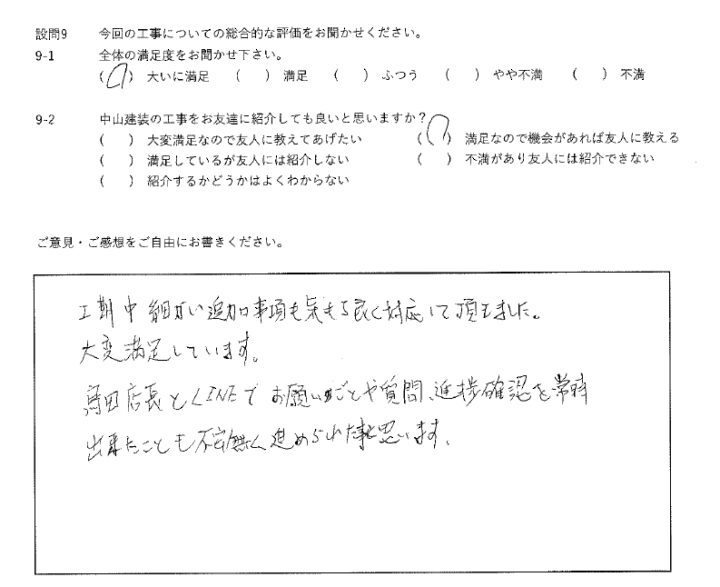 設問9 今回の工事についての総合的な評価をお聞かせください。
9-1 全体の満足度をお聞かせ下さい。
( ) 大いに満足 ( ) 満足 ( ) ふつう ( ) やや不満 ( ) 不満
9-2 中山建装の工事をお友達に紹介しても良いと思いますか?
( ) 大変満足なので友人に教えてあげたい ( ) 満足なので機会があれば友人に教える
( ) 満足しているが友人には紹介しない ( ) 不満があり友人には紹介できない
( ) 紹介するかどうかはよくわからない
ご意見・ご感想をご自由にお書きください。
工期中細かい追加事項も気もち良く対応して頂きました。
大変満足しています。
店長とLINEでお願いごとや質問、進捗確認を常時
出来たことも不安無く進められた事と思います。